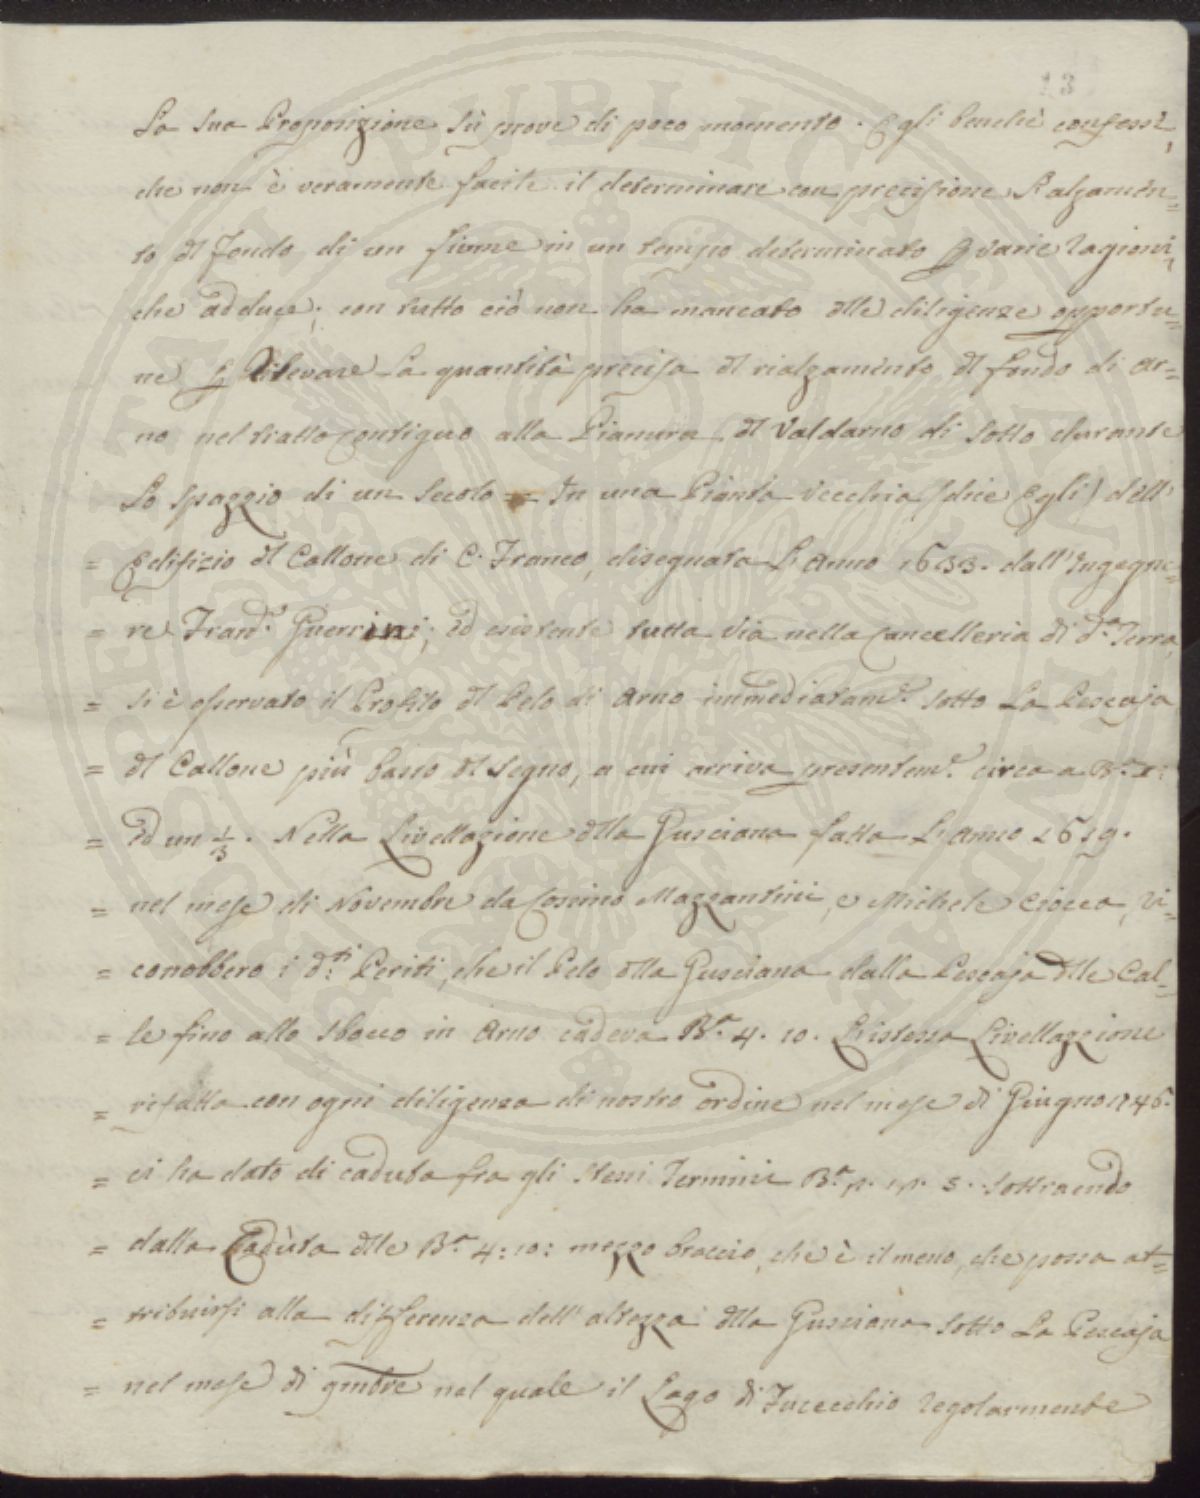 13
La sua Proposizione sù prove di poco momento. Egli benchè confessi,
che non è veramente facile il determinare con precisione l'alzamen=
to dl fondo di un fiume in un tempo determinato p varie ragioni,
che adduce; con tutto ciò non ha mancato dlle diligenze opportu=
ne p rilevare la quantità precisa dl rialzamento dl fondo di Ar=
no nel tratto contiguo alla Pianura dl Valdarno di sotto durante
lo spazzio di un secolo = In una Pianta vecchia (dice Egli) dell'
= Edifizio dl Callone di C. Franco, disegnata l'Anno 1633. dall'Ingegne=
= re Franco. Guerrini; ed esistente tutta via nella Cancelleria di da. Terra,
= si è osservato il Profilo dl Pelo di Arno immediatame. sotto la Pescaja
= dl Callone più basso dl segno, a cui arriva presenteme. circa a Ba. 1:
= ed un 1/3. Nella Livellazione dlla Gusciana fatta l'Anno 1619.
= nel mese di Novembre da Cosimo Mazzantini, e Michele Ciocca, ri=
= conobbero i dti. Periti, che il Pelo dlla Gusciana dalla Pescaja dlle Cal=
= le fino allo sbocco in Arno cadeva Ba. 4. 10. L'istessa Livellazzione
= rifatta con ogni diligenza di nostro ordine nel mese di Giugno 1746.
= ci ha dato di caduta fra gli stessi Termini Ba. sottraendo
= dalla Cadùta dlle Ba. 4: 10: mezzo braccio, che è il meno, che possa at=
= tribuirsi alla differenza dell'altezza dlla Gusciana sotto la Pescaja
= nel mese di 9mbre nel quale il Lago di Fucecchio regolarmente